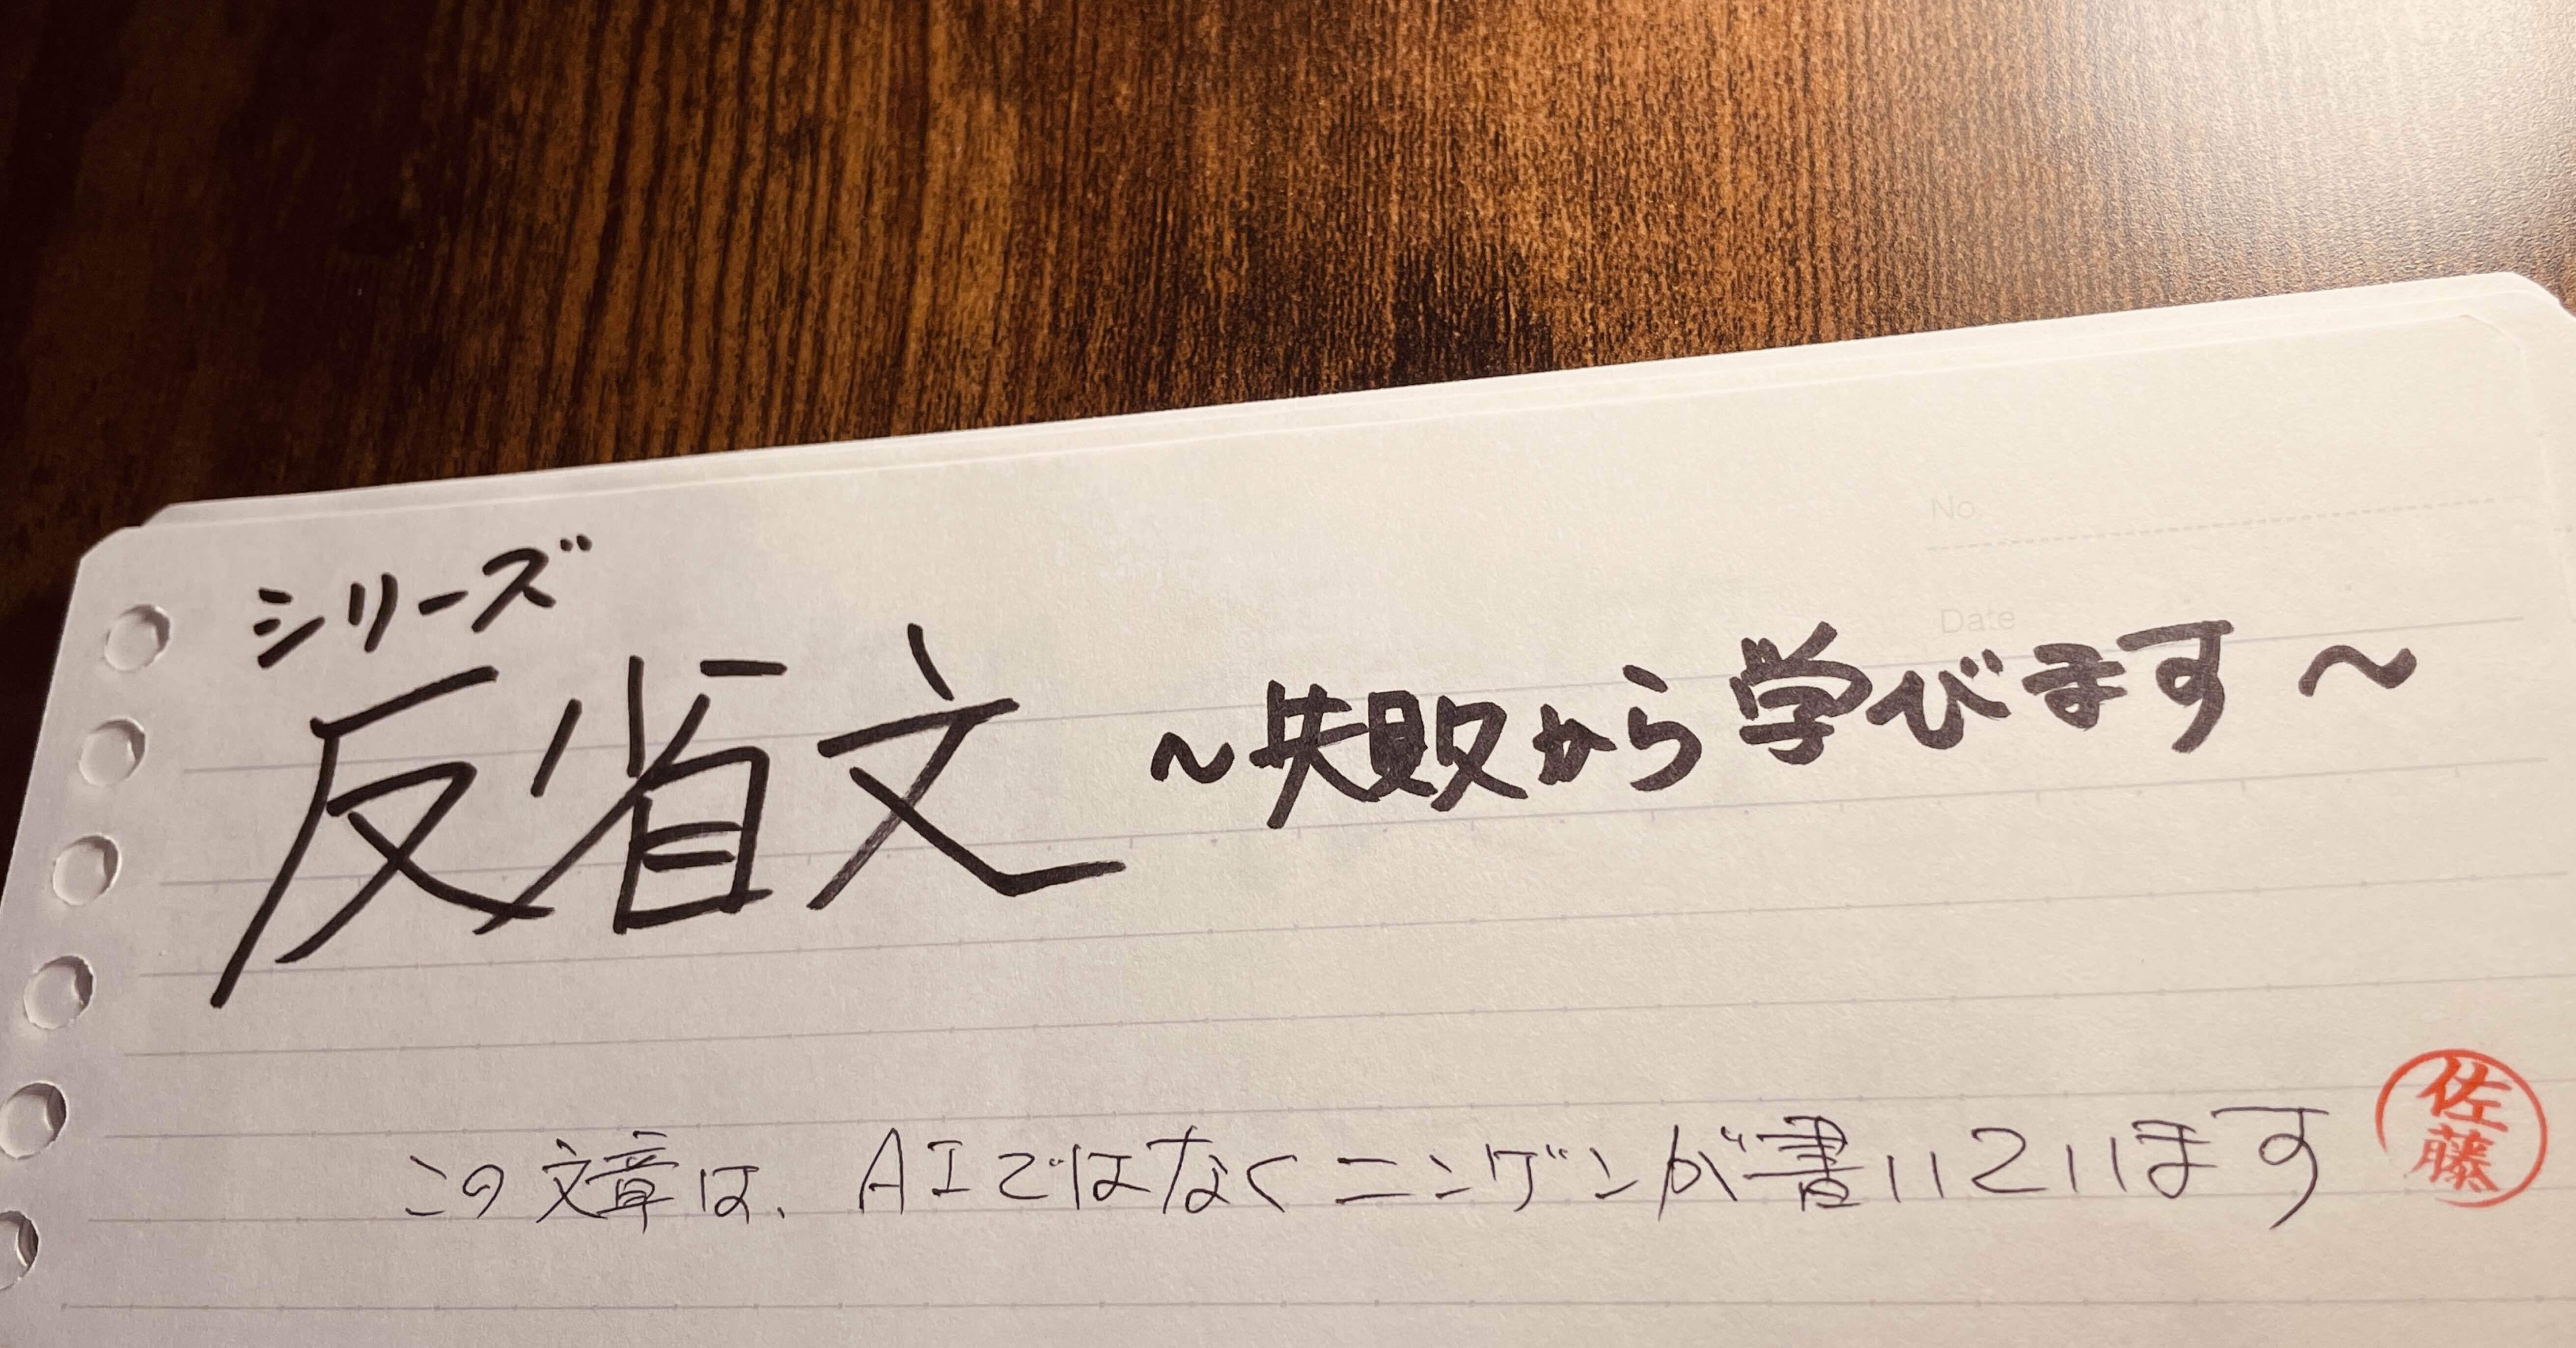 No.
Date
シリーズ
反省文 ～失敗から学びます～
この文章は、AIではなくニンゲンが書いています
佐藤